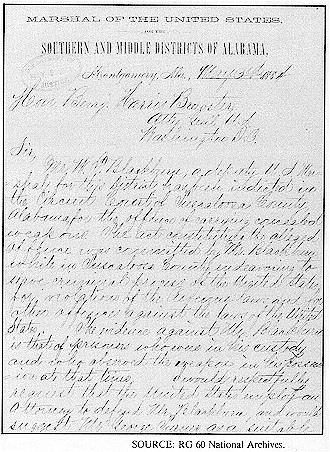 MARSHAL OF THE UNITED STATES,
FOR THE
SOUTHERN AND MIDDLE DISTRICTS OF ALABAMA,
Montgomery, Ala., May 1884
Hon Benj. Harris Brewster,
Atty Genl U.S.
Washington D.C.
Sir,
Mr. W. Blackburn, a deputy U S Mar
shal for this district has been indicted in
the Circuit Court of Tuscaloosa County
Alabama for the offence of carrying concealed
weapons. The act constituting the alleged
offence was committed by Mr. Blackburn
while in Tuscaloosa County endeavoring to
serve criminal process of the United States
for violations of the revenue laws and
other offences against the laws of the United
States. The evidence against Mr. Blackburn
is that of prisoners who were in his custody
and
at that time. I would respectfully
request that the United States employ an
Attorney to defend Mr. Blackburn, and would
suggest Mr. as a suitable
SOURCE: RG 60 National Archives.